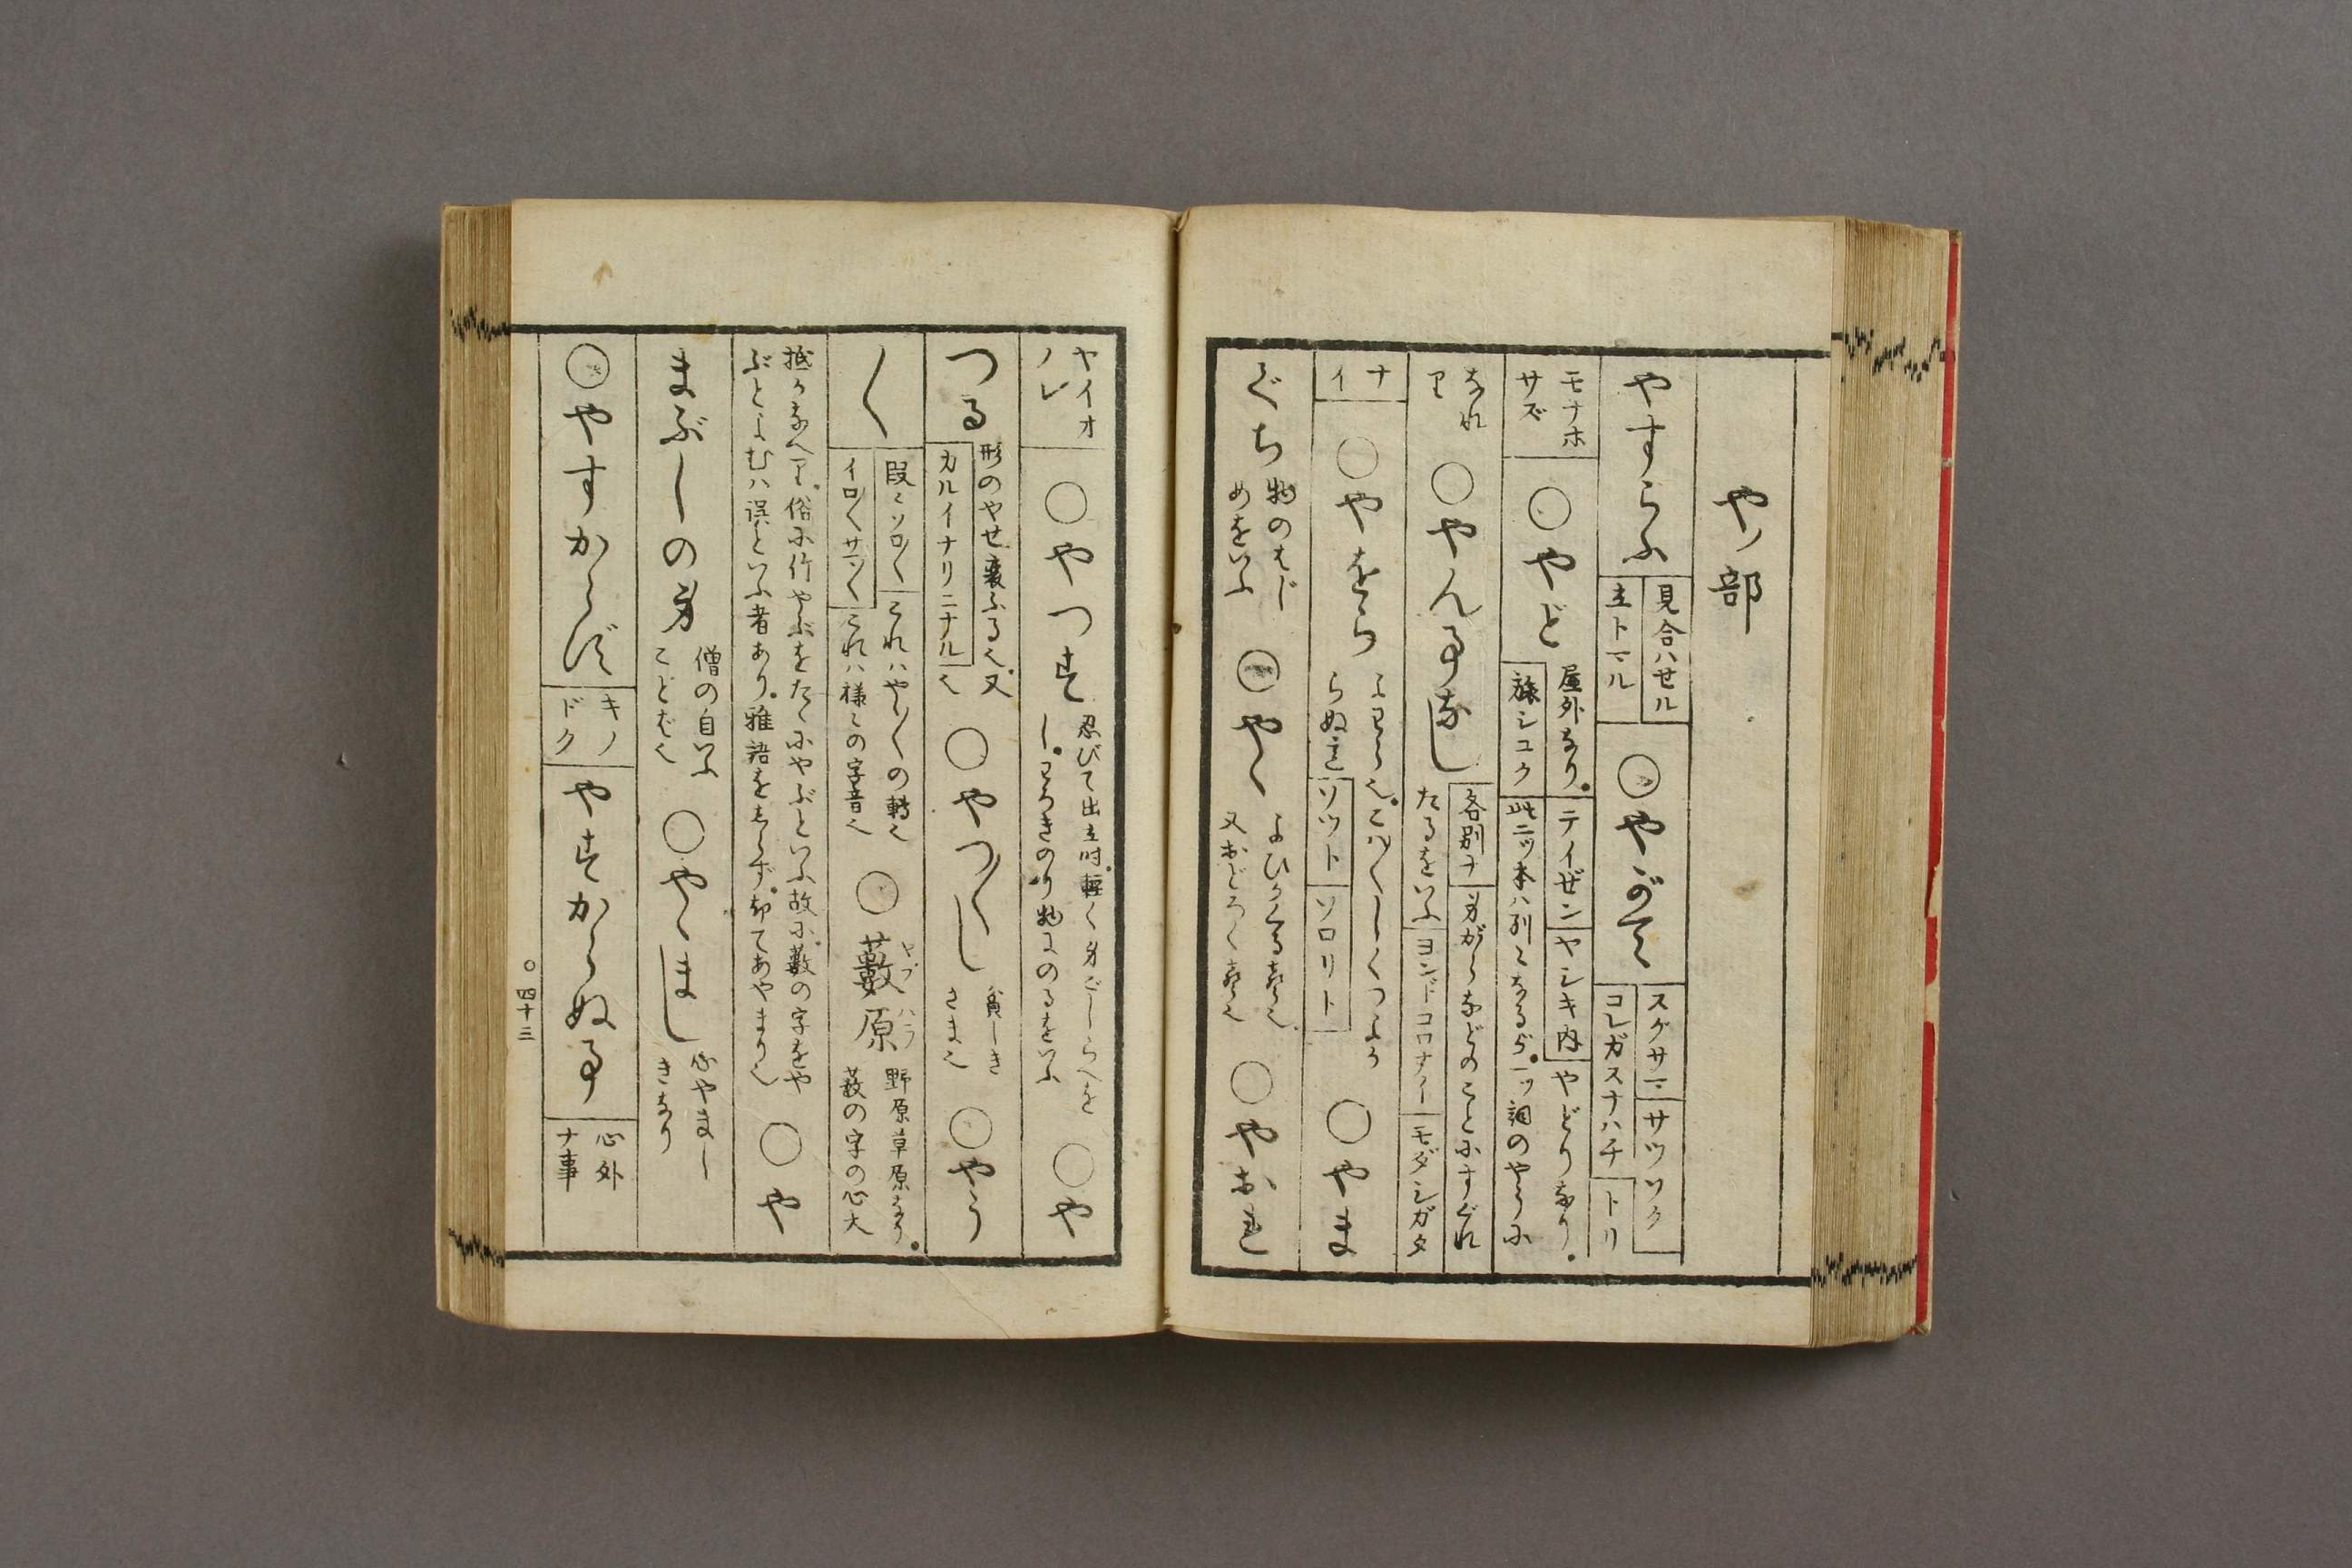 やノ部
やすらふ
見合ハせル
立トマル
○やがて
スグサマ
サツソク
コレガスナハチ
トリ
モナホ
サズ
○やど
屋外なり。
旅シユク
テイゼン
ヤシキ内
やどりなり。
此ニツ本ハ別々なるが。一ツ詞のやうに
なれ
り
○やんごとなし
各別ナ
身がらなどのことにすぐれ
たるをいふ
ヨンドコロナイ
モダシガタ
ナ
イ
○やをら
よわらぬ意
ソツト
ソロリト
○やま
ぐち
物のはじ
めをいふ
○やよ
よびかくる声也。
又おどろく声也
○やおれ
ヤイオ
ノレ
○やつす
忍びて出立時。軽く身ごしらへを
し。わろきのり物にのるをいふ
○や
つる
形のやせ衰ふる也。又
カルイナリニナル
也
○やつ〳〵し
貧しき
さま也
○やう
〳〵
段々ソロ〳〵
これハやう〳〵の轉也
イロ〳〵サマ〴〵
これハ様々の字音也
○藪原
ヤブハラ
野原草原なり。
藪の字の心大
俗に竹やぶをたゝにやぶといふ故に。藪の字をや
ぶとよむハ誤といふ者あり。雅語をしらず。却てあやまり也
○や
まぶしの身
僧の自いふ
ことば也
○やゝまし
心やまし
きなり
○やすからず
キノ
ドク
やすからぬ事
心外
ナ事
○四十三